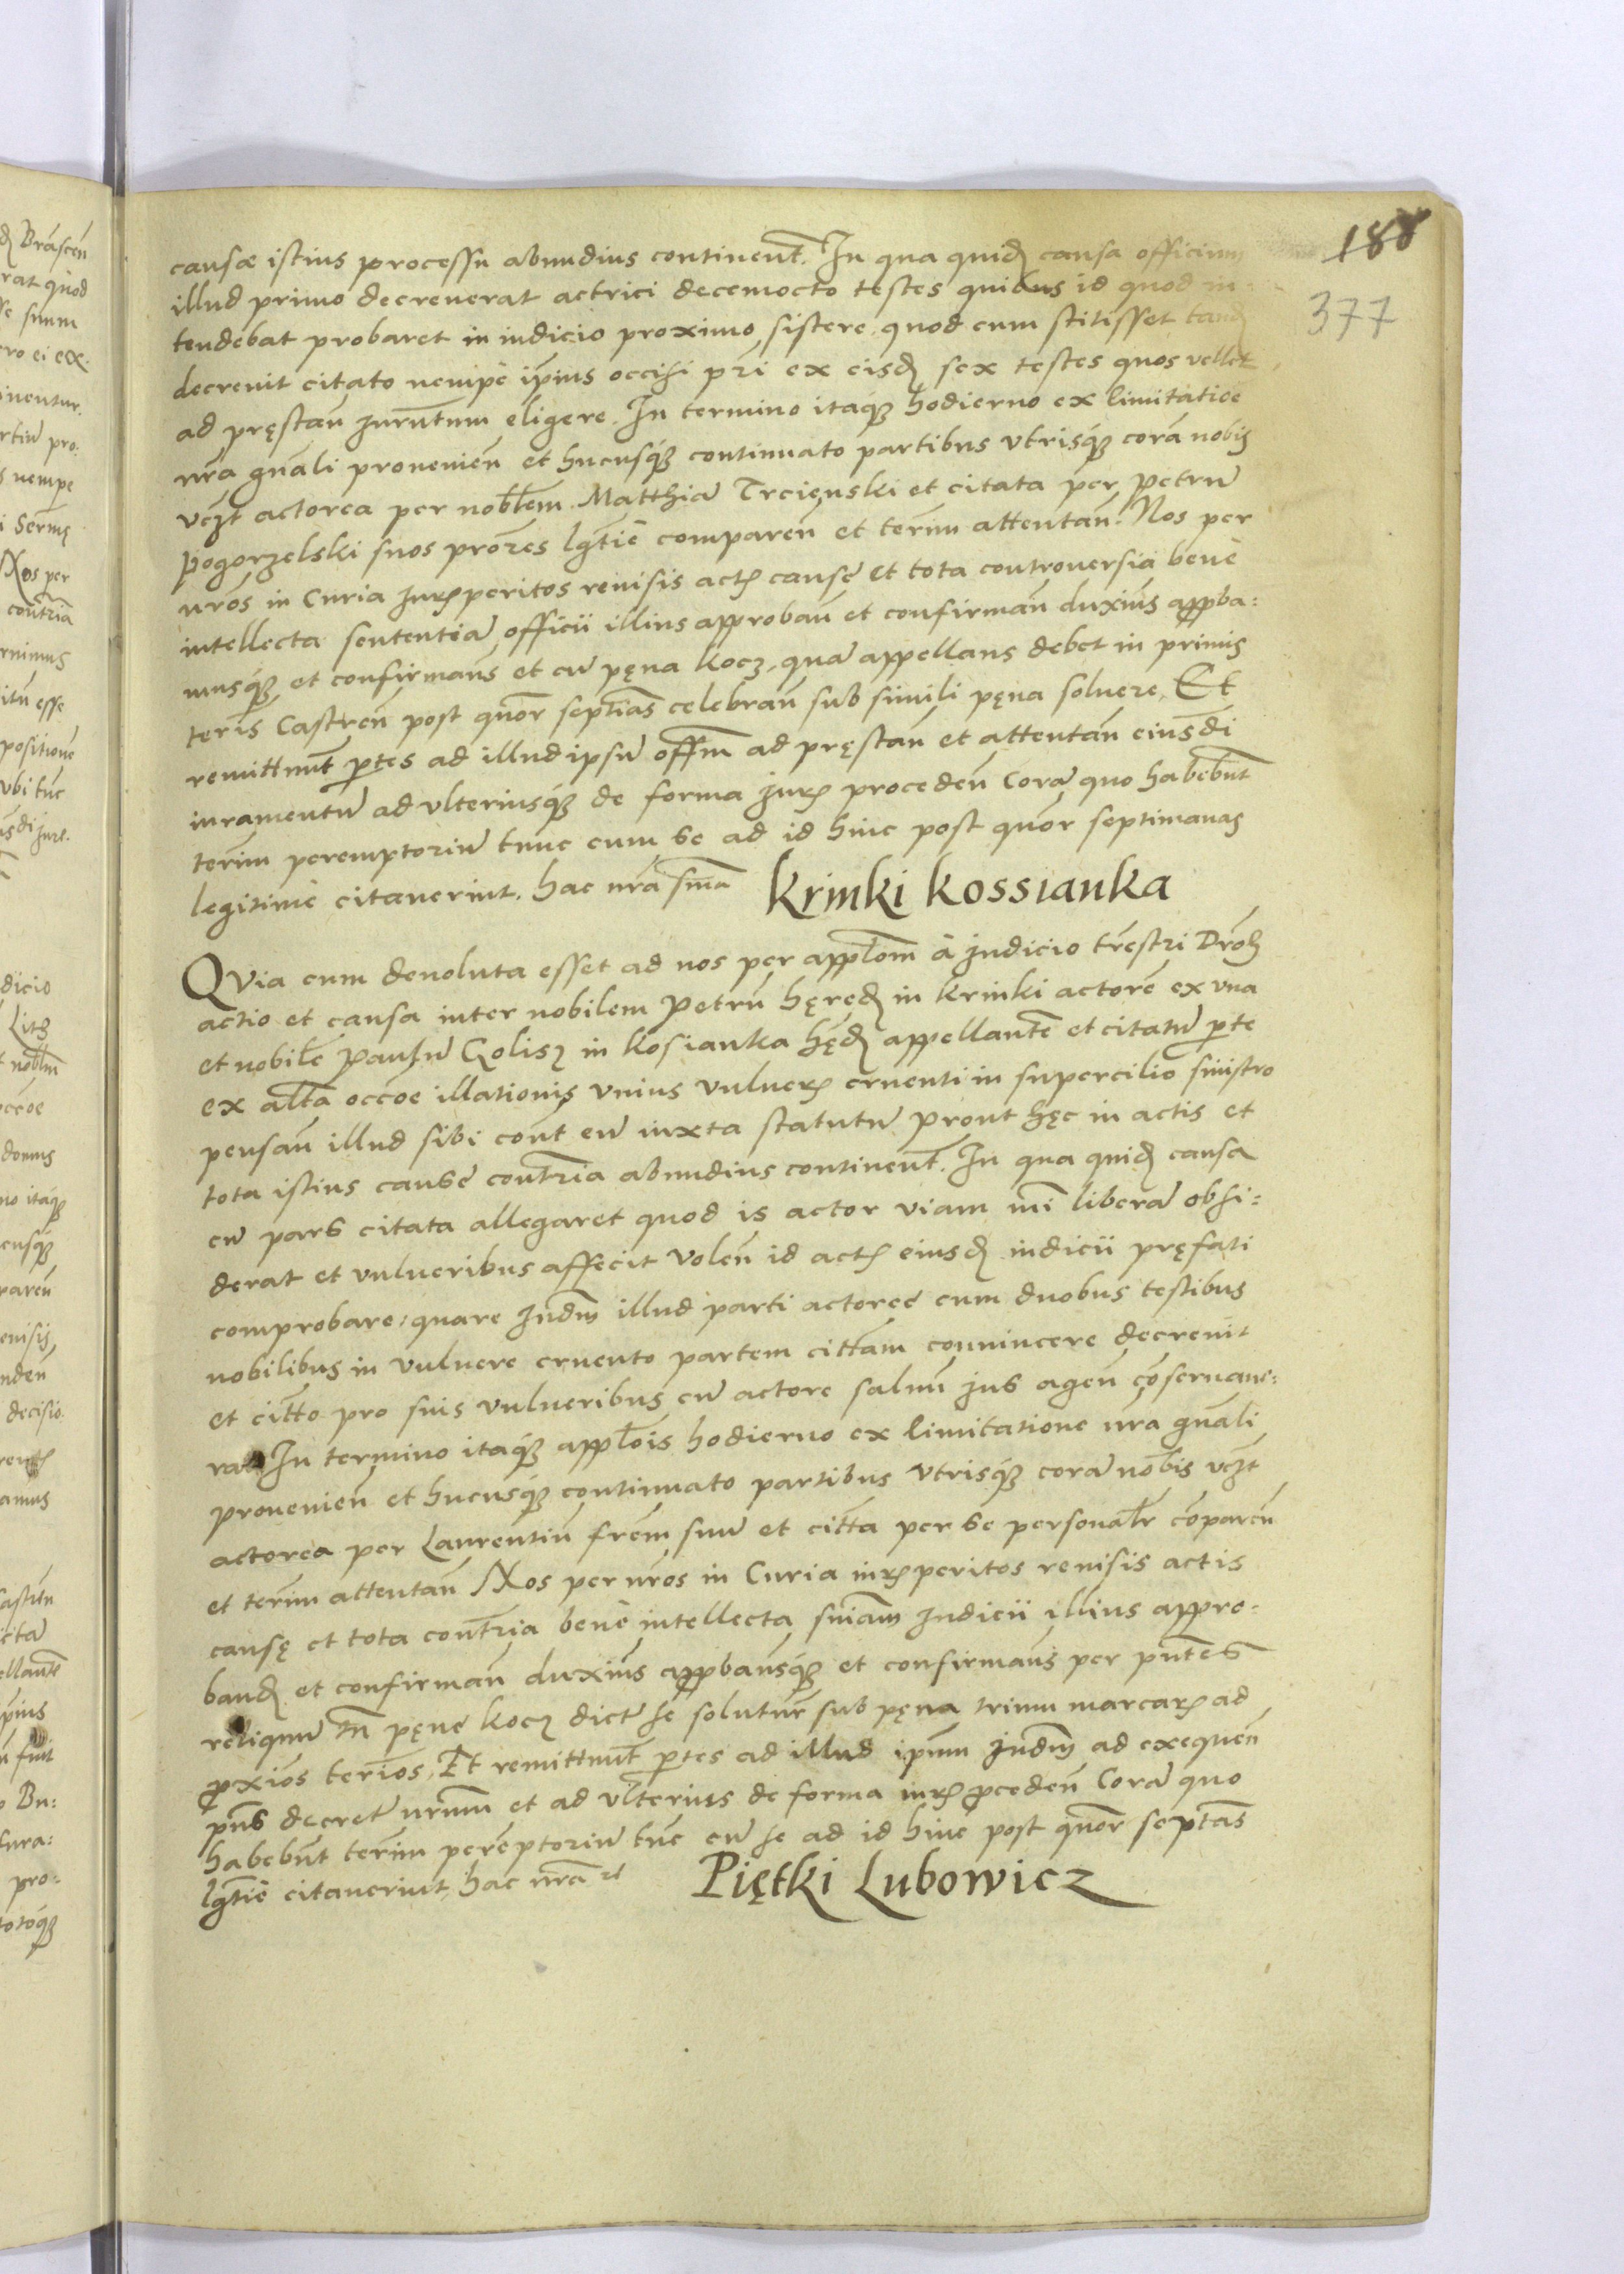 188
377
causæ istius processu abundius continent̃. In qua quidẽ causa officium
illud primo decreuerat actrici decemocto testes quibus id quod in=
tendebat probaret in iudicio proximo sistere, quod cum stitisset tandẽ
decreuit citato nempè ip̃ius occisi p̃ri ex eisdẽ sex testes quos vellet
ad pręstañ jurñtum eligere. In termino itaq́ꝫ hodierno ex limitatiõe
nr̃a gñali prouenieñ et hucusq́ꝫ continuato partibus vtrisq́ꝫ corã nobis
vcꝫt actorea per nobl̃em Matthiã Trcięnski et citata per Petrũ
Pogorzelski suos pror̃es lg̃tiè̃ compareñ et term̃ attentañ. Nos per
nr̃os in Curia Jurꝭperitos reuisis actꝭ causę et tota controuersia benè
intellecta sententiã officii illius approbañ et confirmañ duxim̃s apꝓba=
musq́ꝫ et confirmam̃s et cũ pęna kocz, quã appellans debet in primis
ter̃is Castreñ post quor̃ septi̇ãs celebrañ sub simili pęna soluere. Et
remittunt̃ ꝑtes ad illud ipsũ off̃m ad pręstañ et attentañ eiusdi
iuramentũ ad vlteriusq́ꝫ de forma jurꝭ procedeñ Corã quo habebũt
term̃ peremptoriũ tunc cum se ad id hinc post quor̃ septimanas
legitimè citauerint. hac nr̃a sñia
Krinki Kossianka
QVia cum deuoluta esset ad nos per appl̃om à judicio tr̃estri Droh̃
actio et causa inter nobilem Petrũ hęredẽ in Krinki actorẽ ex vna
et nobilẽ Paulũ Golisz in Kosianka hędẽ appellantẽ et citatũ ꝑte
ex alt̃a occ̃oe illationis vnius vulnerꝭ cruenti in supercilio sinistro
pensañ illud sibi cont̃ eũ iuxta statutũ prout hęc in actis et
tota istius causę cont̃ria abundius continent̃. In qua quidẽ causa
cũ pars citata allegaret quod is actor viam m̃i liberã obsi=
derat et vulneribus affecit volen̄ id actꝭ eiusdẽ iudicii pręfati
comprobare: quare Judm̃ illud parti actoreę cum duobus testibus
nobilibus in vulnere cruento partem citt̃am conuincere decreuit
et citt̃o pro suis vulneribus cũ actore saluũ jus ageñ cõseruaue=
rat In termino itaq́ꝫ appl̃ois hodierno ex limitatione nr̃a gñali
prouenieñ et hucusq́ꝫ continuato partibus vtrisq́ꝫ corã nobis vcꝫt
actorea per Laurentiũ frem̃ suũ et citt̃a per se personal̃r cõpareñ
et term̃ attentañ Nos per nr̃os in Curia iurꝭperitos reuisis actis
causę et tota cont̃ria benè intellecta sñiam Judicii illius appro=
bandẽ et confirmañ duxim̃s apꝓbam̃sq́ꝫ et confirmam̃s per pñtes
reliquũ tñ pęnę kocz dictꝭ se soluturꝭ sub pęna trium marcarꝭ ad
ꝓxim̃os term̃os. Et remittunt̃ ꝑtes ad illud ip̃um Judm̃ ad exequeñ
pñs decretũ nr̃um et ad vlterius de forma iurꝭ ꝓcedeñ Corã quo
habebũt term̃ perẽptoriũ tũc cũ se ad id hinc post quor̃ septãs
lg̃tiè̃ citauerint, hac nr̃a
Piętki Lubowicz